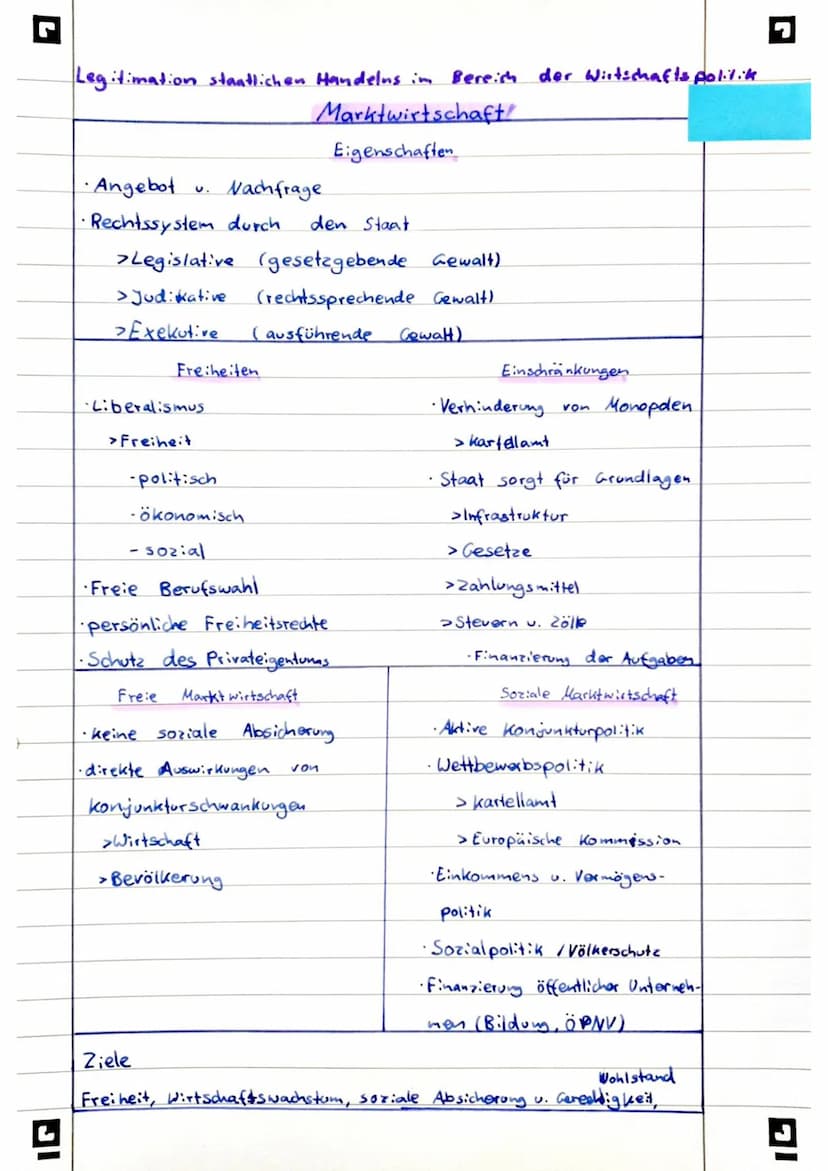 Legitimation staatlichen Handelns im Bereich der Wirtschaftspolitik
Marktwirtschaft!
Eigenschaften
· Angebot u. Nachfrage
· Rechtssystem durch den Staat
> Legislative (gesetzgebende Gewalt)
> Judikative (rechtssprechende Gewalt)
> Exekutive (ausführende Gewalt)
Freiheiten
· Liberalismus
> Freiheit
- politisch
- ökonomisch
- sozial
· Freie Berufswahl
· persönliche Freiheitsrechte
· Schutz des Privateigentums
Einschränkungen
· Verhinderung von Monopolen
> Kartellamt
· Staat sorgt für Grundlagen
> Infrastruktur
> Gesetze
> Zahlungsmittel
> Steuern u. Zölle
· Finanzierung der Aufgaben
Freie Marktwirtschaft
· keine soziale Absicherung
· direkte Auswirkungen von
Konjunkturschwankungen
> Wirtschaft
> Bevölkerung
Soziale Marktwirtschaft
· Aktive Konjunkturpolitik
· Wettbewerbspolitik
> Kartellamt
> Europäische Kommission
· Einkommens u. Vermögens-
politik
· Sozialpolitik / Völkerschutz
· Finanzierung öffentlicher Unterneh-
men (Bildung, ÖPNV)
Ziele
Freiheit, Wirtschaftswachstum, soziale Absicherung u. Gerechtigkeit,
Wohlstand